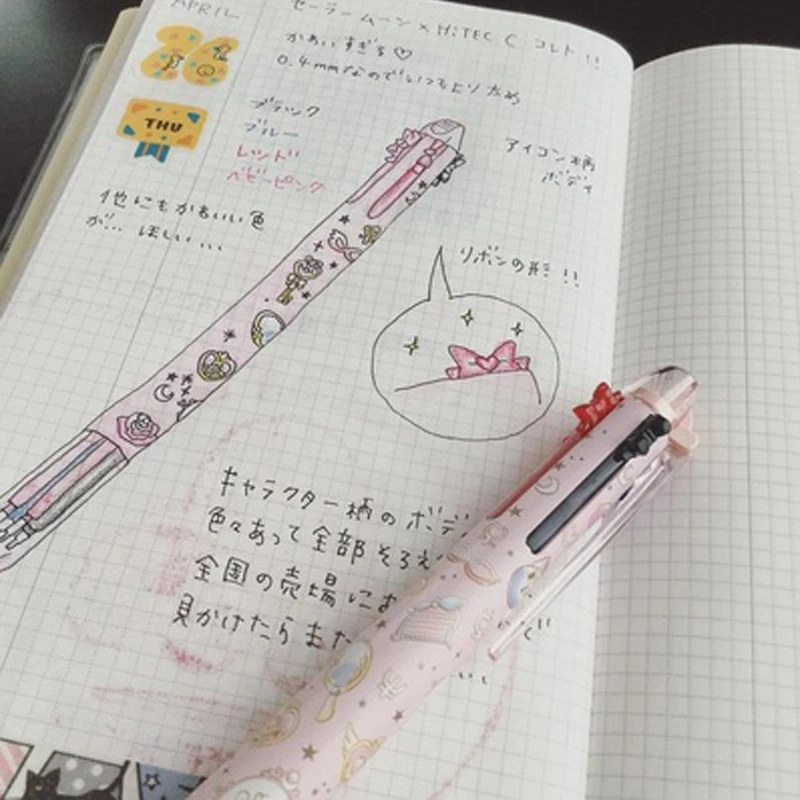 APRIL
26
THU
セーラームーン × HiTEC C コレト!!
かあいすぎる♡
0.4mmなのでいつもより太め
ブラック
ブルー
レッド
ベビーピンク
他にもかわいい色
が... ほしい...
アイコン柄
ボディ
リボンの形!!
キャラクター柄のボデ
色々あって全部そろえ
全国の売場に
見かけたらまた